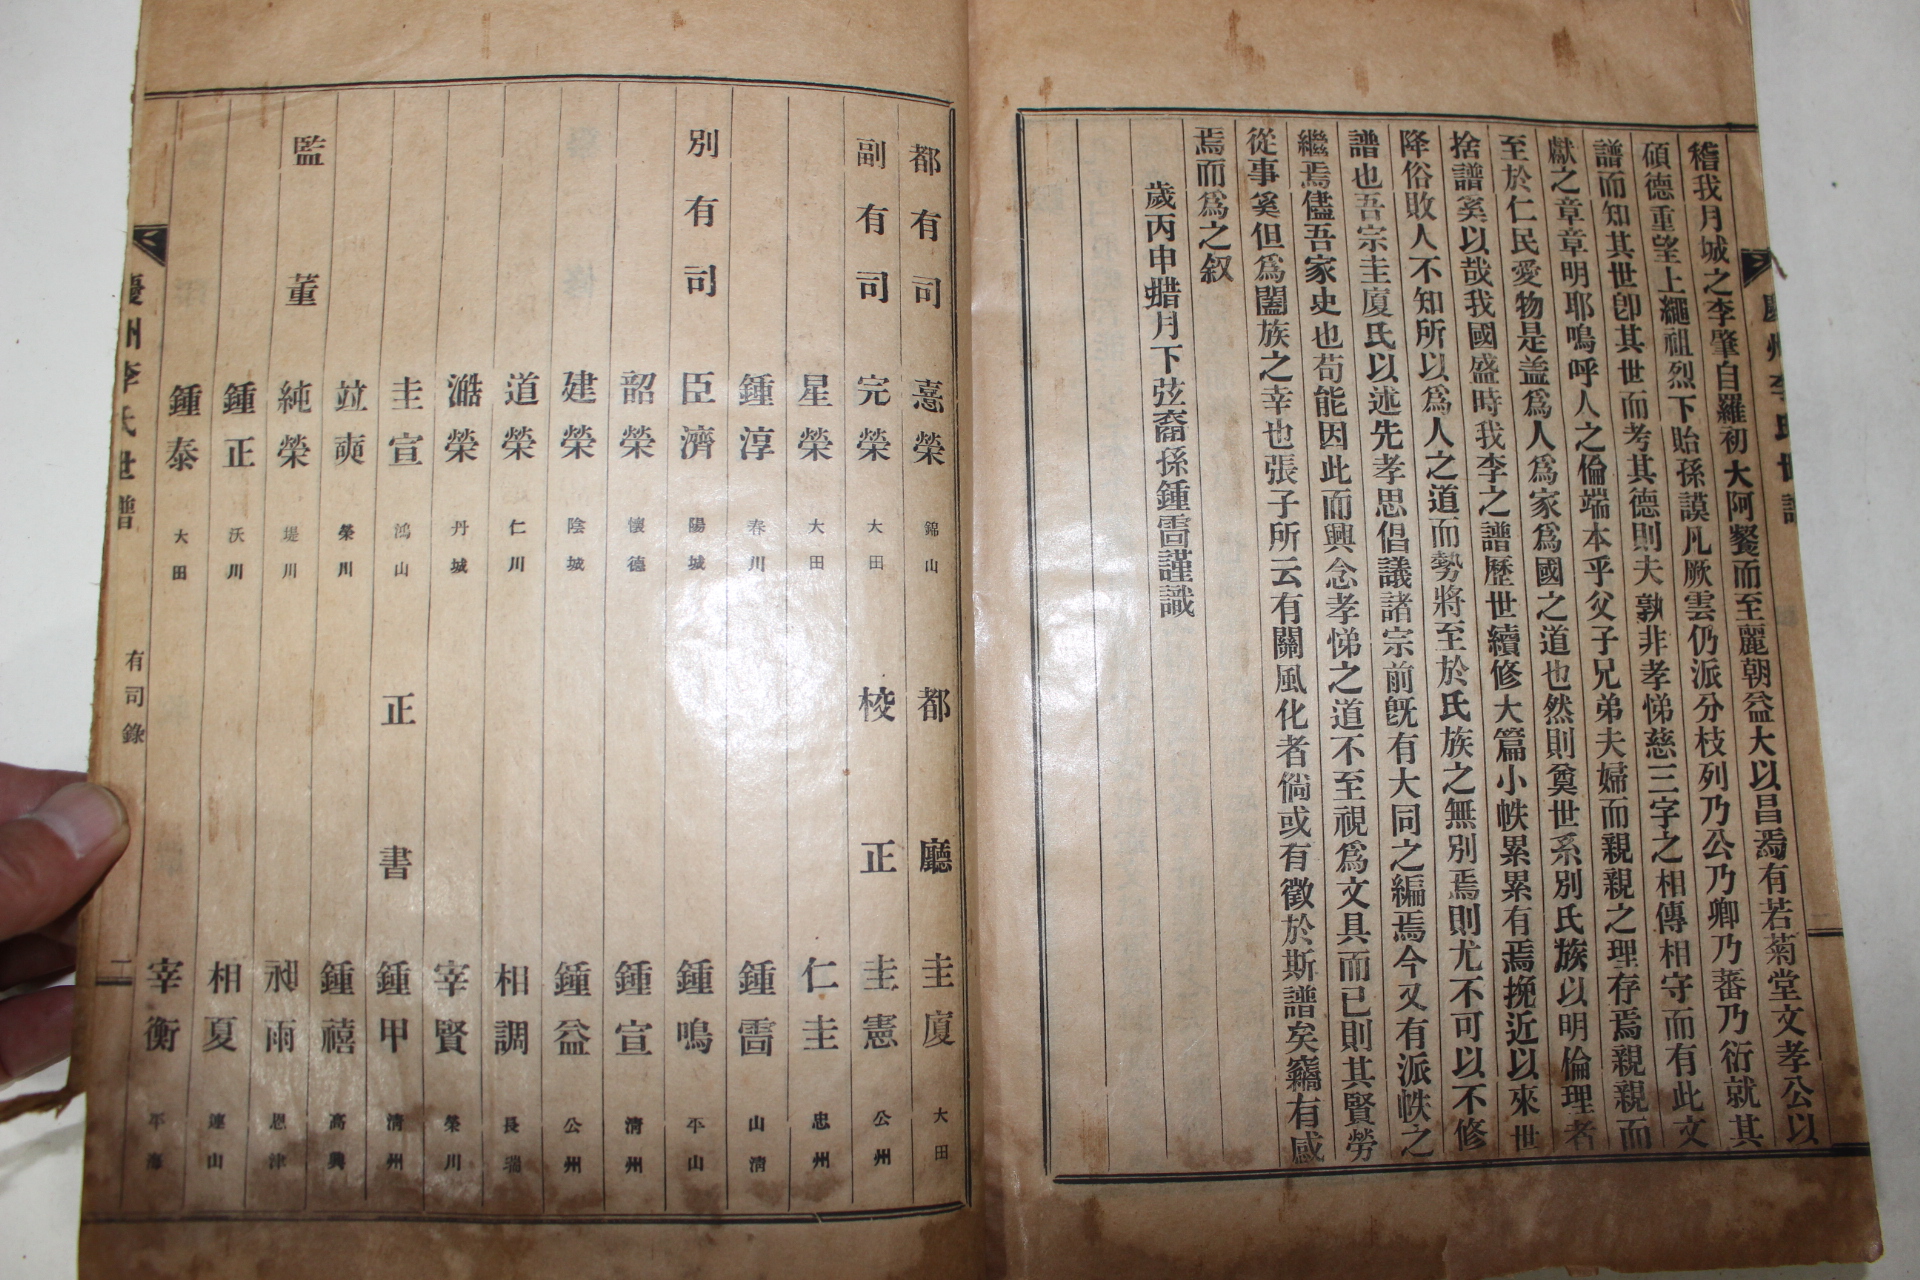 稽我月城之李肇自羅初大阿飡而至麗朝益大以昌焉有若菊堂文孝公以
碩德重望上繩祖烈下貽孫謨凡厥雲仍派分枝列乃公乃卿乃蕃乃衍就其
譜而知其世卽其世而考其德則夫孰非孝悌慈三字之相傳相守而有此文
獻之章章明耶嗚呼人之倫端本乎父子兄弟夫婦而親親之理存焉親親而
至於仁民愛物是盖爲人爲家爲國之道也然則奠世系別氏族以明倫理者
捨譜奚以哉我國盛時我李之譜歷世續修大篇小帙累累有焉挽近以來世
降俗敗人不知所以爲人之道而勢將至於氏族之無別焉則尤不可以不修
譜也吾宗圭廈氏以述先孝思倡議諸宗前旣有大同之編焉今又有派帙之
繼焉儘吾家史也苟能因此而興念孝悌之道不至視爲文具而已則其賢勞
從事奚但爲闔族之幸也張子所云有關風化者倘或有徵於斯譜矣竊有感
焉而爲之叙
歲丙申蜡月下弦裔孫鍾雩謹識
慶州李氏世譜
都有司 憙榮 錦山 都廳 圭廈 大田
副有司 完榮 大田 校正 圭憲 公州
星榮 大田 仁圭 忠州
鍾淳 春川 鍾雩 山清
別有司 臣濟 陽城 鍾鳴 平山
韶榮 懷德 鍾宣 清州
建榮 陰城 鍾益 公州
道榮 仁川 相調 長瑞
澔榮 丹城 宰賢 榮川
圭宣 鴻山 正書 鍾甲 清州
竝奭 榮川 鍾禧 高興
監董 純榮 堤川 昶雨 恩津
鍾正 沃川 相夏 連山
鍾泰 大田 宰衡 平海
慶州李氏世譜 有司錄 二